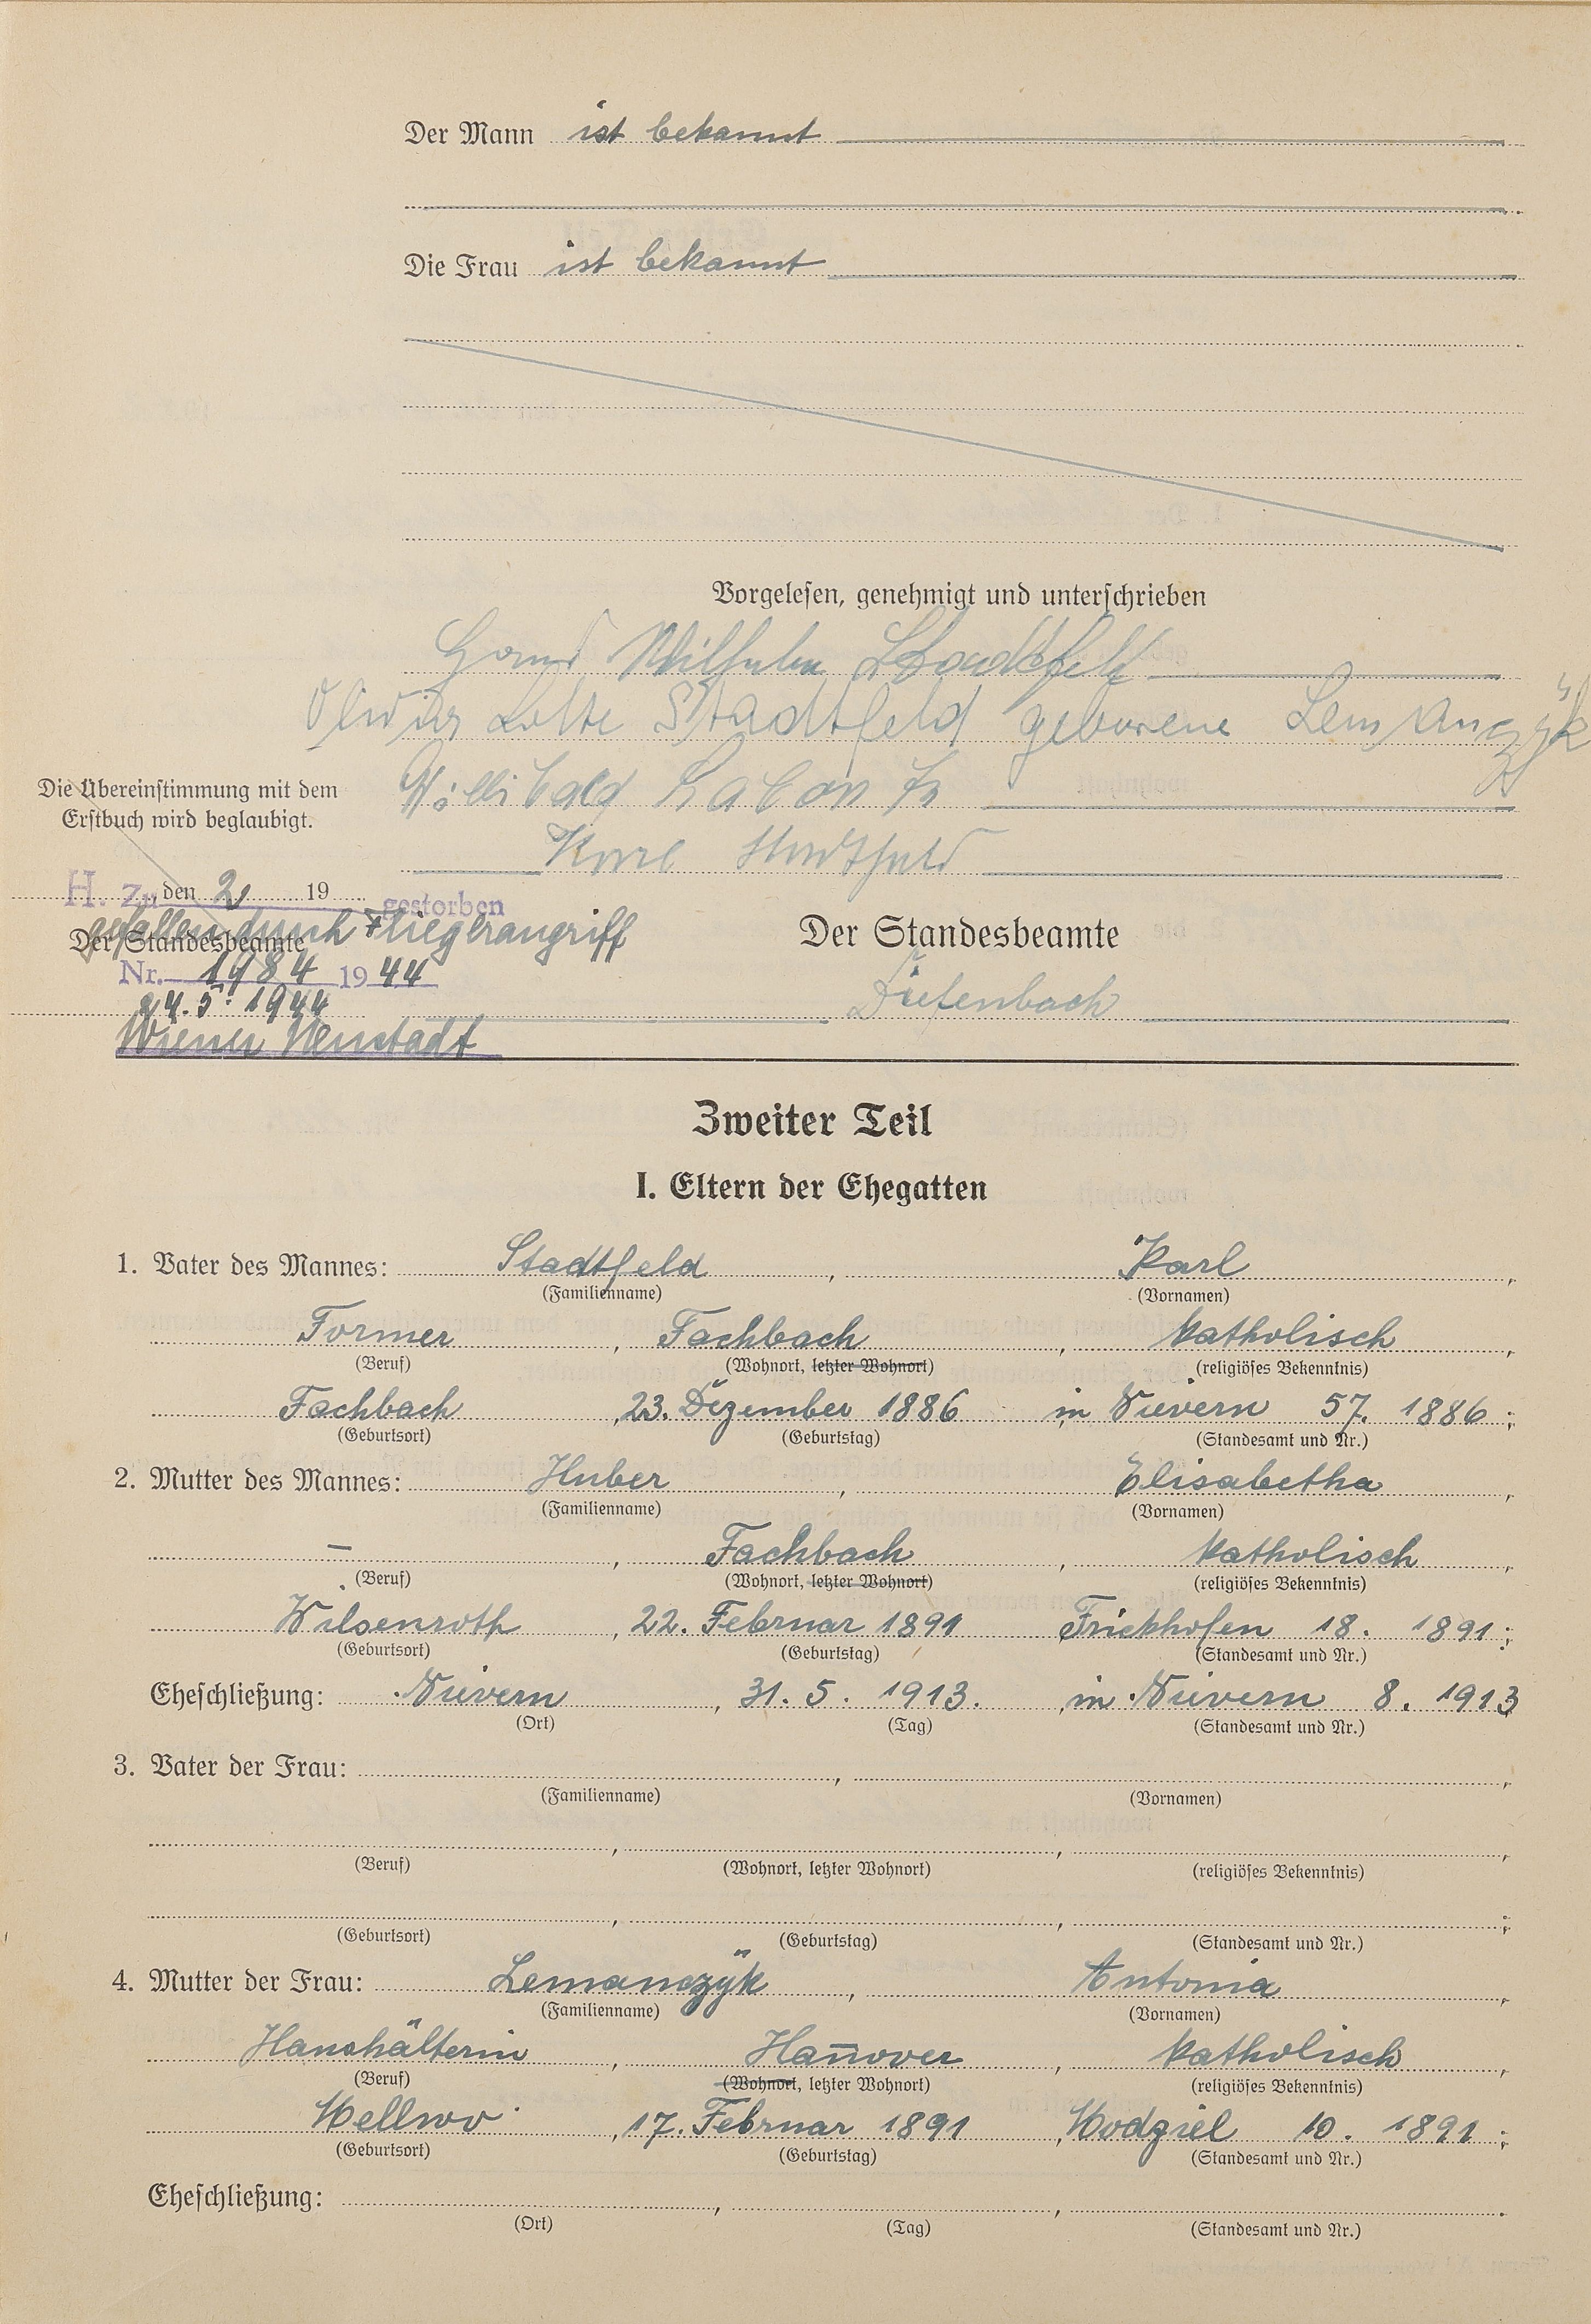 Der Mann ist bekannt
Die Frau ist bekannt
Vorgelesen, genehmigt und unterschrieben
Wilhelm Stadtfeld
Lotte Stadtfeld geborene Lemanczÿk
Willibald
Karl Stadtfeld
Die Übereinstimmung mit dem
Erstbuch wird beglaubigt.
H. zu, den 2, 19 gestorben
gefallen durch Fliegerangriff
Der Standesbeamte
Nr. 1984 1944
24.5. 1944
Wiener Neustadt
Der Standesbeamte
Diefenbach
Zweiter Teil
I. Eltern der Ehegatten
1. Vater des Mannes: Stadtfeld, Karl,
(Familienname) (Vornamen)
Former, Fachbach, katholisch,
(Beruf) (Wohnort, letzter Wohnort) (religiöses Bekenntnis)
Fachbach, 23. Dezember 1886 in Nievern 57. 1886;
(Geburtsort) (Geburtstag) (Standesamt und Nr.)
2. Mutter des Mannes: Huber, Elisabetha,
(Familienname) (Vornamen)
–, Fachbach, katholisch,
(Beruf) (Wohnort, letzter Wohnort) (religiöses Bekenntnis)
Wilsenroth, 22. Februar 1891 Frickhofen 18. 1891;
(Geburtsort) (Geburtstag) (Standesamt und Nr.)
Eheschließung: Nievern, 31. 5. 1913., in Nievern 8. 1913
(Ort) (Tag) (Standesamt und Nr.)
3. Vater der Frau: , ,
(Familienname) (Vornamen)
(Beruf) (Wohnort, letzter Wohnort) (religiöses Bekenntnis)
(Geburtsort) (Geburtstag) (Standesamt und Nr.)
4. Mutter der Frau: Lemanczÿk, Antonia,
(Familienname) (Vornamen)
Haushälterin, Han̄over, katholisch,
(Beruf) (Wohnort, letzter Wohnort) (religiöses Bekenntnis)
17. Februar 1891, 10. 1891;
(Geburtsort) (Geburtstag) (Standesamt und Nr.)
Eheschließung: , , .
(Ort) (Tag) (Standesamt und Nr.)